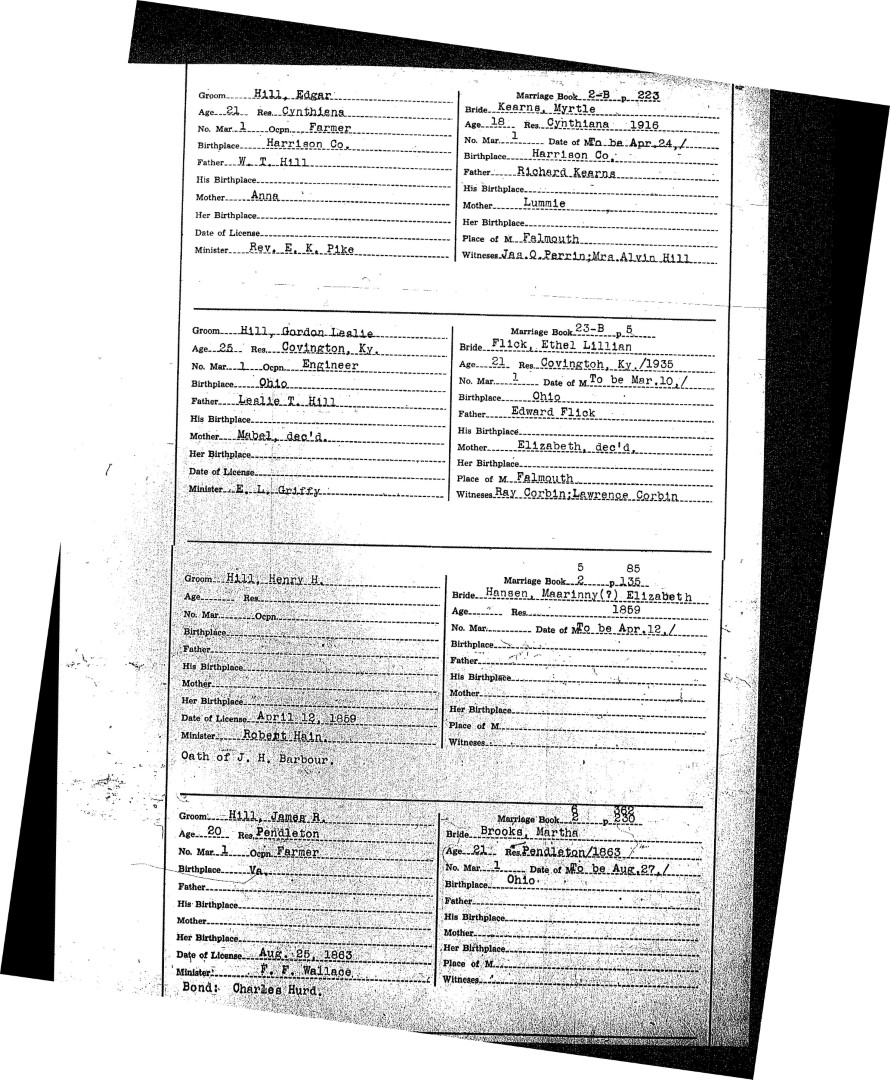 Groom Hill, Edgar
Age 21 Res. Cynthiana
No. Mar. 1 Ocpn. Farmer
Birthplace Harrison Co.
Father W. T. Hill
His Birthplace
Mother Anna
Her Birthplace
Date of License
Minister Rev. E. K. Pike
Marriage Book 2-B p. 223
Bride Kearns, Myrtle
Age 18 Res. Cynthiana 1916
No. Mar. 1 Date of M. To be Apr.24,/
Birthplace Harrison Co.
Father Richard Kearns
His Birthplace
Mother Lummie
Her Birthplace
Place of M. Falmouth
Witnesses Jas.O.Perrin;Mrs.Alvin Hill
Groom Hill, Gordon Leslie
Age 25 Res. Covington, Ky.
No. Mar. 1 Ocpn. Engineer
Birthplace Ohio
Father Leslie T. Hill
His Birthplace
Mother Mabel, dec'd.
Her Birthplace
Date of License
Minister E. L. Griffy
Marriage Book 23-B p. 5
Bride Flick, Ethel Lillian
Age 21 Res. Covington, Ky./1935
No. Mar. 1 Date of M. To be Mar.10,/
Birthplace Ohio
Father Edward Flick
His Birthplace
Mother Elizabeth, dec'd.
Her Birthplace
Place of M. Falmouth
Witnesses Ray Corbin;Lawrence Corbin
Groom Hill, Henry H.
Age Res.
No. Mar. Ocpn.
Birthplace
Father
His Birthplace
Mother
Her Birthplace
Date of License April 12, 1859
Minister Robert Hain.
Oath of J. H. Barbour.
5 85
Marriage Book 2 p. 135
Bride Hansen, Maarinny(?) Elizabeth
Age Res. 1859
No. Mar. Date of M. To be Apr.12,/
Birthplace
Father
His Birthplace
Mother
Her Birthplace
Place of M.
Witnesses
Groom Hill, James R.
Age 20 Res. Pendleton
No. Mar. 1 Ocpn. Farmer
Birthplace Va.
Father
His Birthplace
Mother
Her Birthplace
Date of License Aug. 25, 1863
Minister F. F. Wallace
Bond: Charles Hurd.
6 362
Marriage Book 2 p. 230
Bride Brooks, Martha
Age 21 Res. Pendleton/1863
No. Mar. 1 Date of M. To be Aug.27,/
Birthplace Ohio
Father
His Birthplace
Mother
Her Birthplace
Place of M.
Witnesses